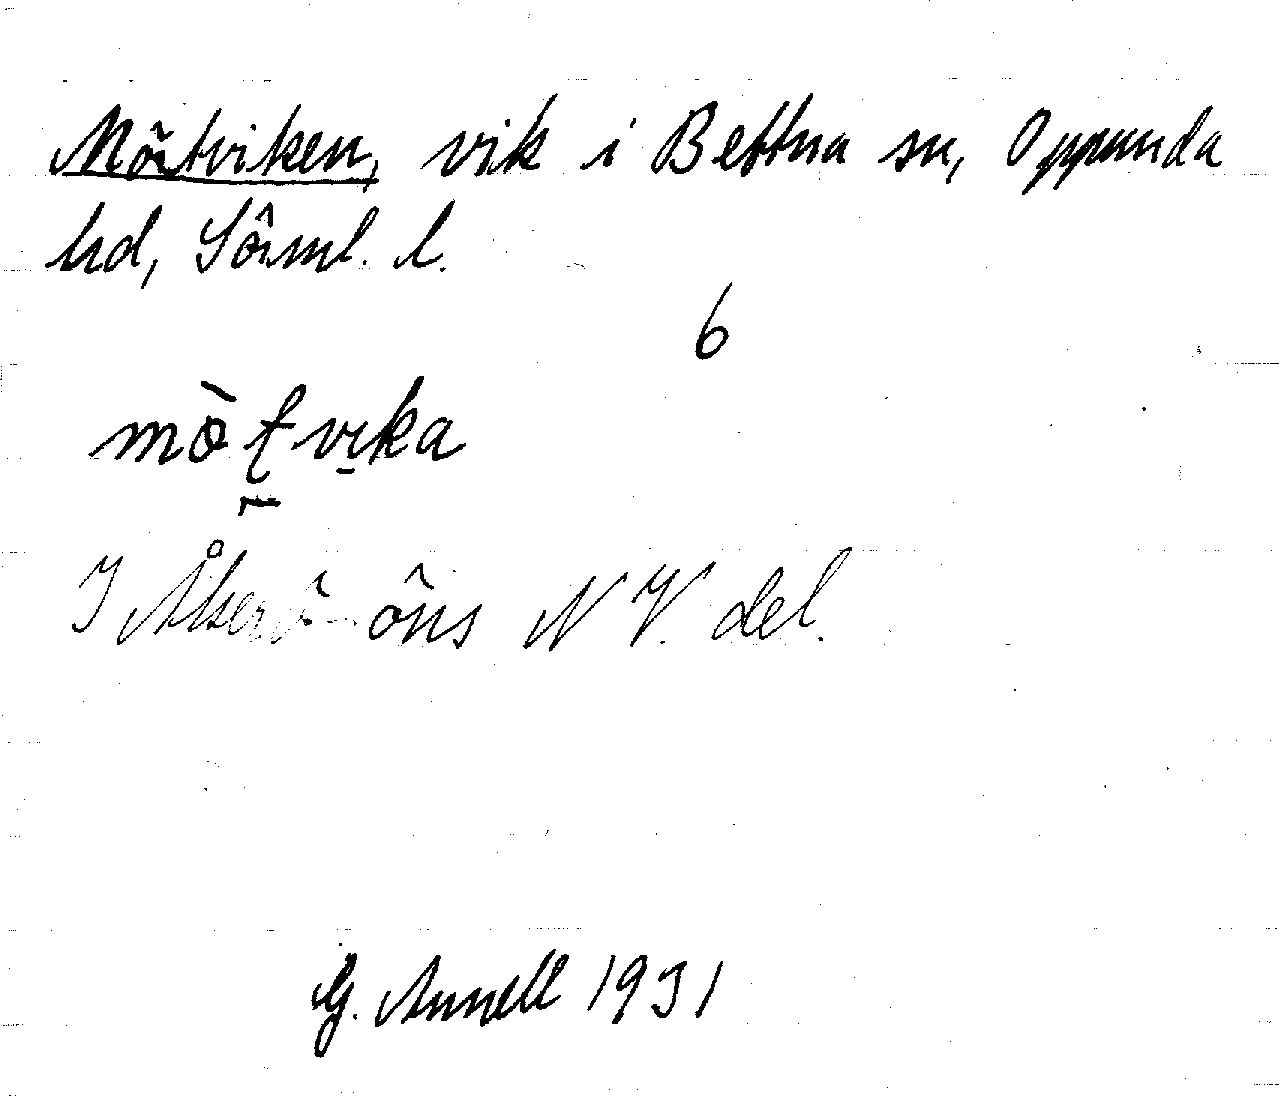 Mörtviken, vik i Bettna sn, Oppunda
hd, Sörml. l.
6
mòt̠vi̠ka
I Åkerö öns N V. del.
G. Annell 1931